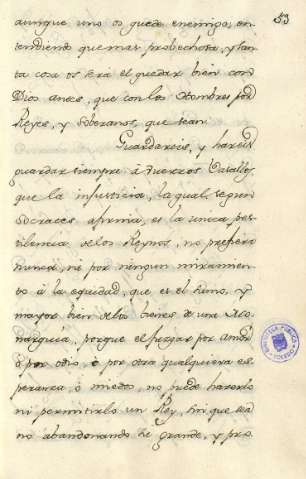 53
aunque uno os quede enemigo, en-
tendiendo que mas probechosa, y san-
ta cosa os será el quedar bien con
Dios antes, que con los Hombres por
Reyes, y Soberanos, que sean.
Guardareis, y hareis
guardar siempre á vuestros Vasallos,
que la injusticia, la qual, segun
Socrates afirma, es la unica pes-
tilencia de los Reynos, no prefiera
nunca, ni por ningun miramien-
to á la equidad, que es el lleno, y
mayor bien de los bienes de una Mo-
narquía, porque el juzgar por amor,
ò por odio, ò por otra qualquiera es-
peranza, ó miedos, no puede hacerlo
ni permitirlo un Rey, sin que sea
no abandonando lo grande, y pro-
BIBLIOTECA PUBLICA
TOLEDO